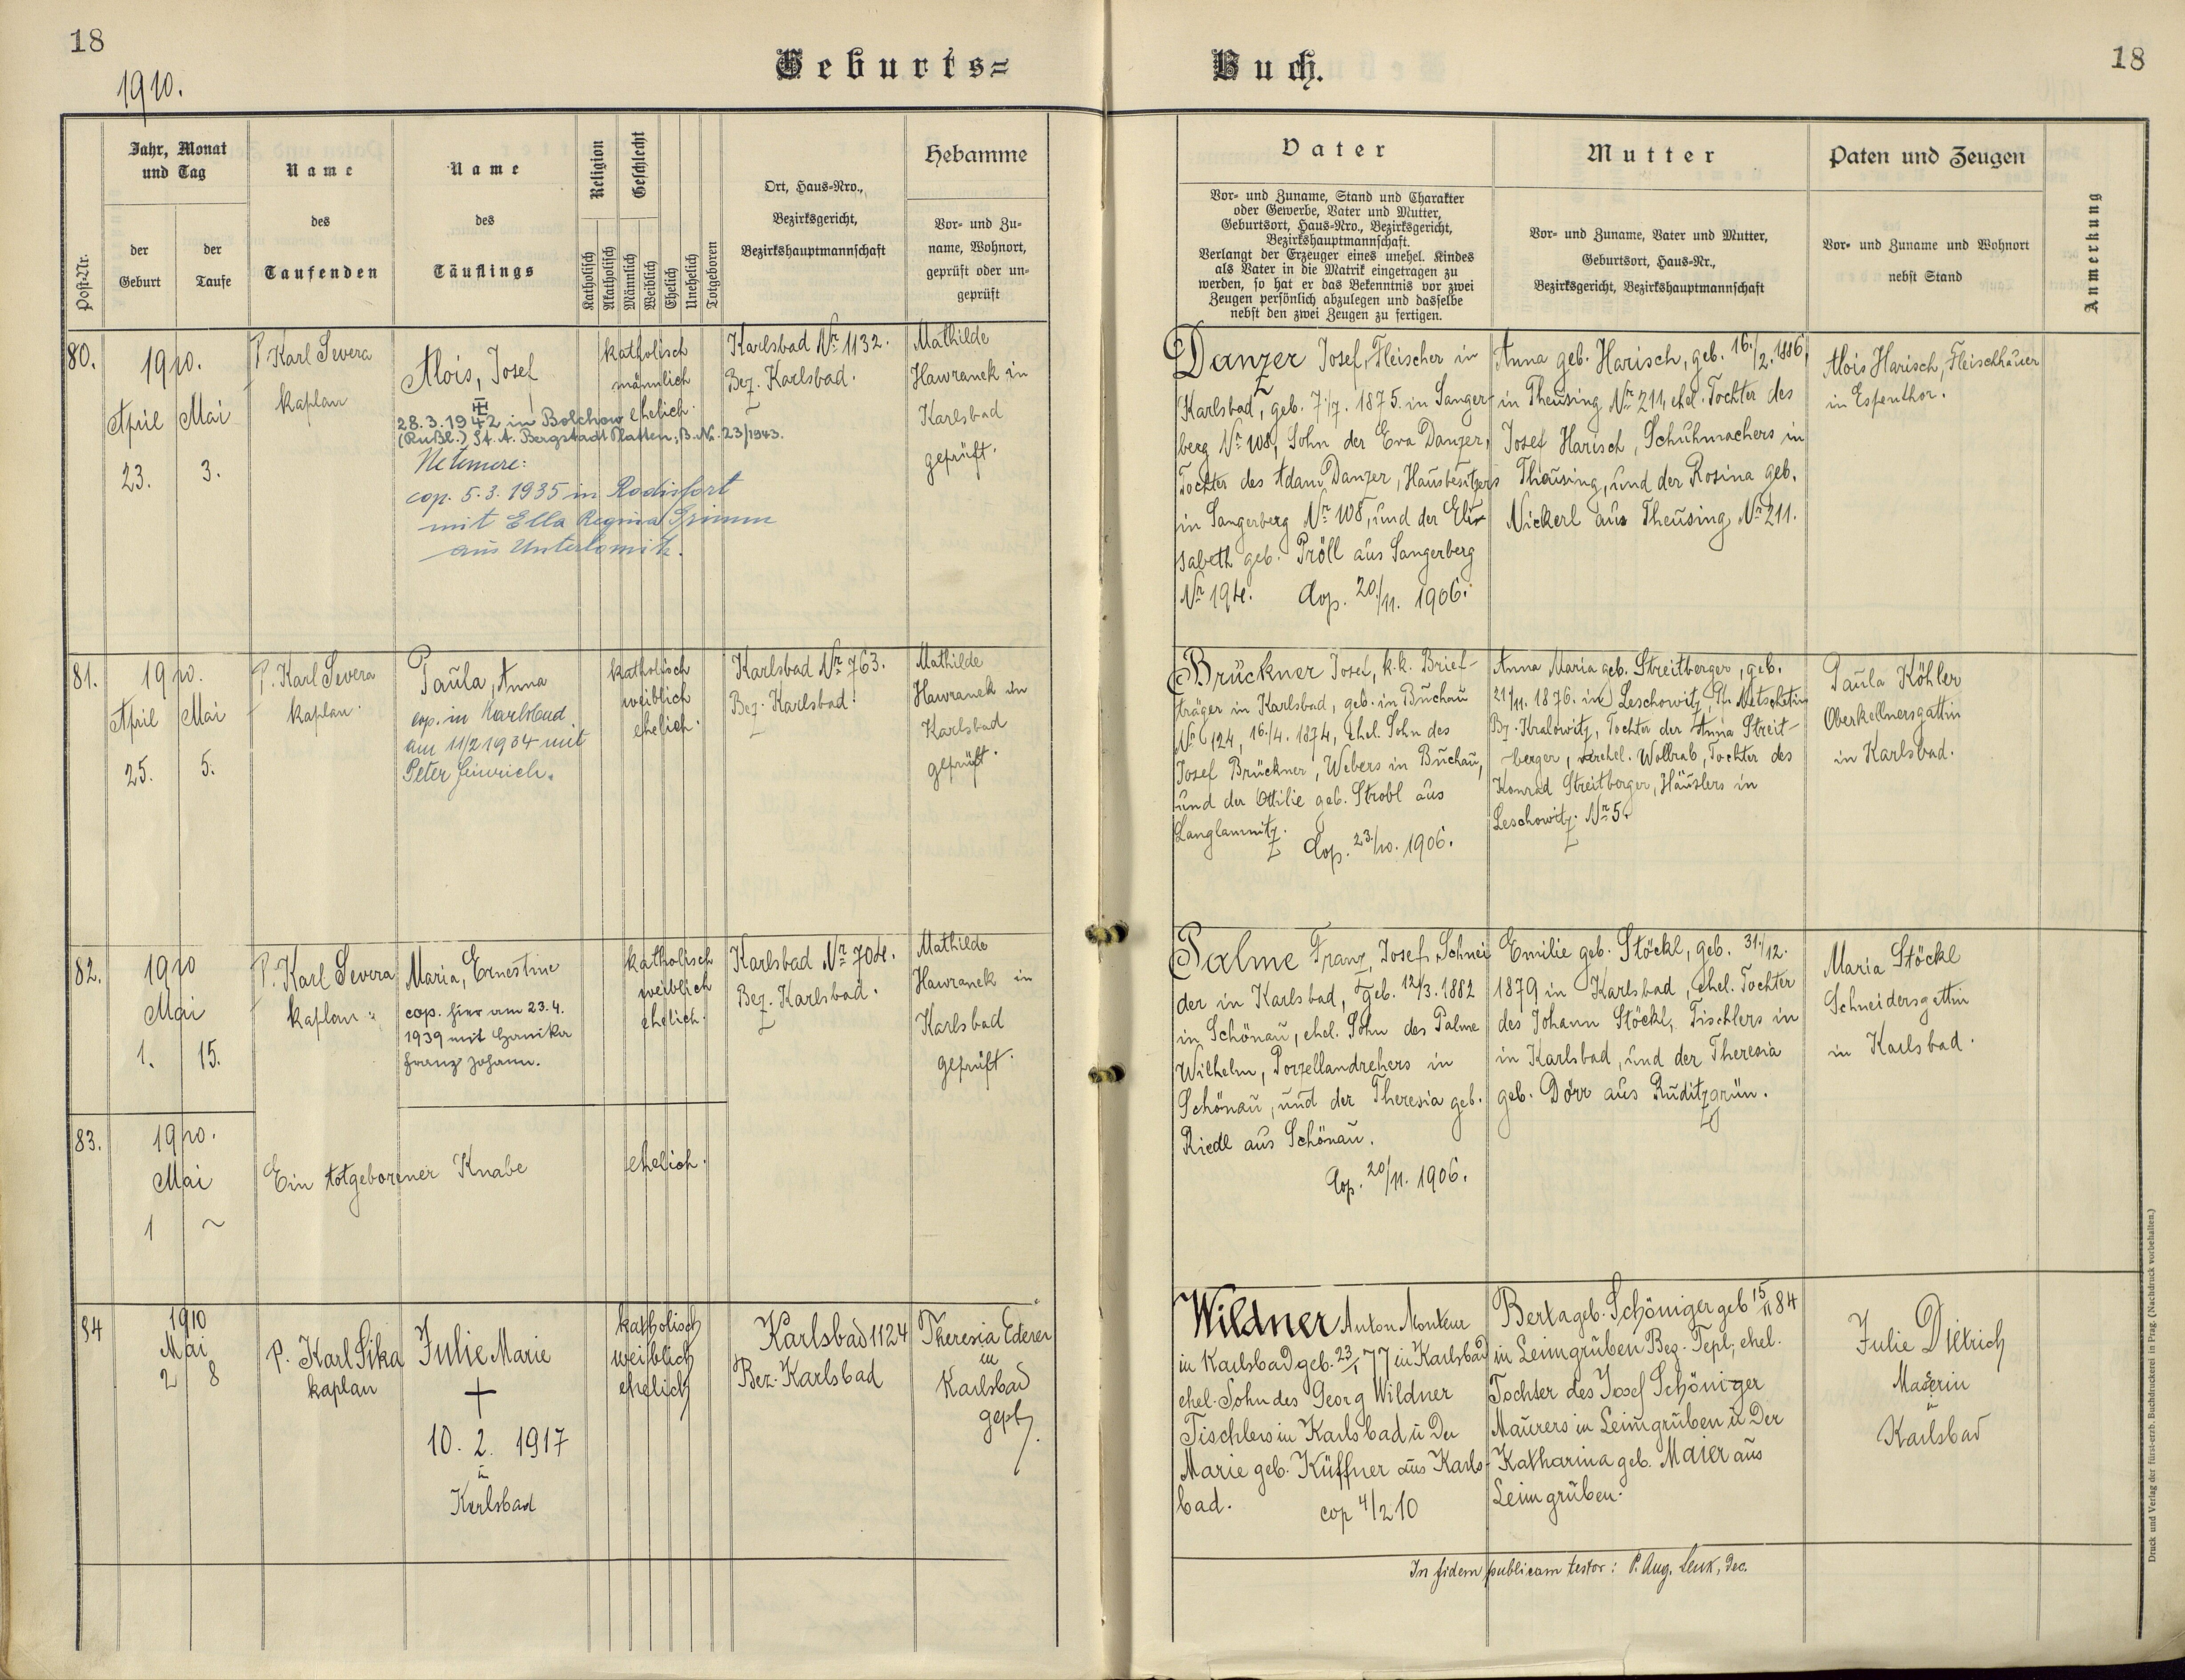 18
1910.
Geburts=
Buch.
18
Post-Nr.
Jahr, Monat
und Tag
der
Geburt
der
Taufe
Name
des
Taufenden
Name
des
Täuflings
Religion
Katholisch
Akatholisch
Geschlecht
Männlich
Weiblich
Ehelich
Unehelich
Totgeboren
Ort, Haus-Nro.,
Bezirksgericht,
Bezirkshauptmannschaft
Hebamme
Vor- und Zu-
name, Wohnort,
geprüft oder un-
geprüft
Vater
Vor- und Zuname, Stand und Charakter
oder Gewerbe, Vater und Mutter,
Geburtsort, Haus-Nro., Bezirksgericht,
Bezirkshauptmannschaft.
Verlangt der Erzeuger eines unehel. Kindes
als Vater in die Matrik eingetragen zu
werden, so hat er das Bekenntnis vor zwei
Zeugen persönlich abzulegen und dasselbe
nebst den zwei Zeugen zu fertigen.
Mutter
Vor- und Zuname, Vater und Mutter,
Geburtsort, Haus-Nr.,
Bezirksgericht, Bezirkshauptmannschaft
Paten und Zeugen
Vor- und Zuname und Wohnort
nebst Stand
Anmerkung
80.
1910.
April
23.
Mai
3.
P. Karl Severa
kaplan
Alois, Josef
28.3.1942 in Bolchow
(Rußl.) St. A. Bergstadt Platten, B. No. 23/1943.
cop. 5.3.1935 in Rodisfort
mit Ella Regina Grimm
aus Unterlomitz.
katholisch
männlich
ehelich.
Karlsbad Nr. 1132.
Bez. Karlsbad.
Mathilde
Hawranek in
Karlsbad
geprüft.
Danzer Josef, Fleischer in
Karlsbad, geb. 7./7. 1875. in Sanger-
berg Nr. 108, Sohn der Eva Danzer,
Tochter des Adam Danzer, Hausbesitzers
in Sangerberg Nr. 108, und der Eli-
sabeth geb. Pröll aus Sangerberg
Nr. 194. Cop. 20./11. 1906.
Anna geb. Harisch, geb. 16./2. 1886,
in Theusing Nr. 211, ehel. Tochter des
Josef Harisch, Schuhmachers in
Theusing, und der Rosina geb.
Nickerl aus Theusing Nr. 211.
Alois Harisch, Fleischhauer
in Espenthor.
81.
1910.
April
25.
Mai
5.
P. Karl Severa
kaplan.
Paula, Anna
cop. in Karlsbad
am 11/2 1934 mit
Peter Heinrich.
katholisch
weiblich
ehelich.
Karlsbad Nr. 763.
Bez. Karlsbad.
Mathilde
Hawranek in
Karlsbad
geprüft.
Brückner Josef, k.k. Brief-
träger in Karlsbad, geb. in Buchau
Nr. 124, 16./4. 1874, ehel. Sohn des
Josef Brückner, Webers in Buchau,
und der Ottilie geb. Strobl aus
Langlamnitz. Cop. 23./10. 1906.
Anna Maria geb. Streitberger, geb.
21./11. 1876. in Leschowitz, Pf. Netschetin
Bz. Kralowitz, Tochter der Anna Streit-
berger, verehel. Wollrab, Tochter des
Konrad Streitberger, Häuslers in
Leschowitz Nr. 5.
Paula Köhler
Oberkellnersgattin
in Karlsbad.
82.
1910
Mai
1. 15.
P. Karl Severa
kaplan
Maria, Ernestine
cop. hier am 23.4.
1939 mit Hanika
Franz Johann.
katholisch
weiblich
ehelich.
Karlsbad Nr. 704.
Bez. Karlsbad.
Mathilde
Hawranek in
Karlsbad
geprüft.
Palme Franz, Josef, Schnei
der in Karlsbad, geb. 12./3. 1882
in Schönau, ehel. Sohn des Palme
Wilhelm, Porzellandrehers in
Schönau, und der Theresia geb.
Riedl aus Schönau.
Cop. 20/11. 1906.
Emilie geb. Stöckl, geb. 31./12.
1879 in Karlsbad, ehel. Tochter
des Johann Stöckl, Tischlers in
in Karlsbad, und der Theresia
geb. Dörr aus Ruditzgrün.
Maria Stöckl
Schneidersgattin
in Karlsbad.
83.
1910.
Mai
1 ~
Ein totgeborener Knabe
ehelich.
84
1910
Mai
2 8
P. Karl Sika
kaplan
Julie Marie
†
10. 2. 1917
in
Karlsbad
katholisch
weiblich
ehelich
Karlsbad 1124
Bez. Karlsbad
Theresia Ederer
in
Karlsbad
gept.
Wildner Anton Monteur
in Karlsbad geb. 23/1 77 in Karlsbad
ehel. Sohn des Georg Wildner
Tischlers in Karlsbad u der
Marie geb. Küffner aus Karls-
bad. cop 4/2 10
Berta geb. Schöniger geb 15/11 84
in Leimgruben Bez. Tepl, ehel.
Tochter des Josef Schöniger
Maurers in Leimgruben u der
Katharina geb. Maier aus
Leimgruben.
Julie Dietrich
in
Karlsbad
In fidem publicam testor: P. Aug. Lenk, Dec.
Druck und Verlag der fürst-erzb. Buchdruckerei in Prag. (Nachdruck vorbehalten.)